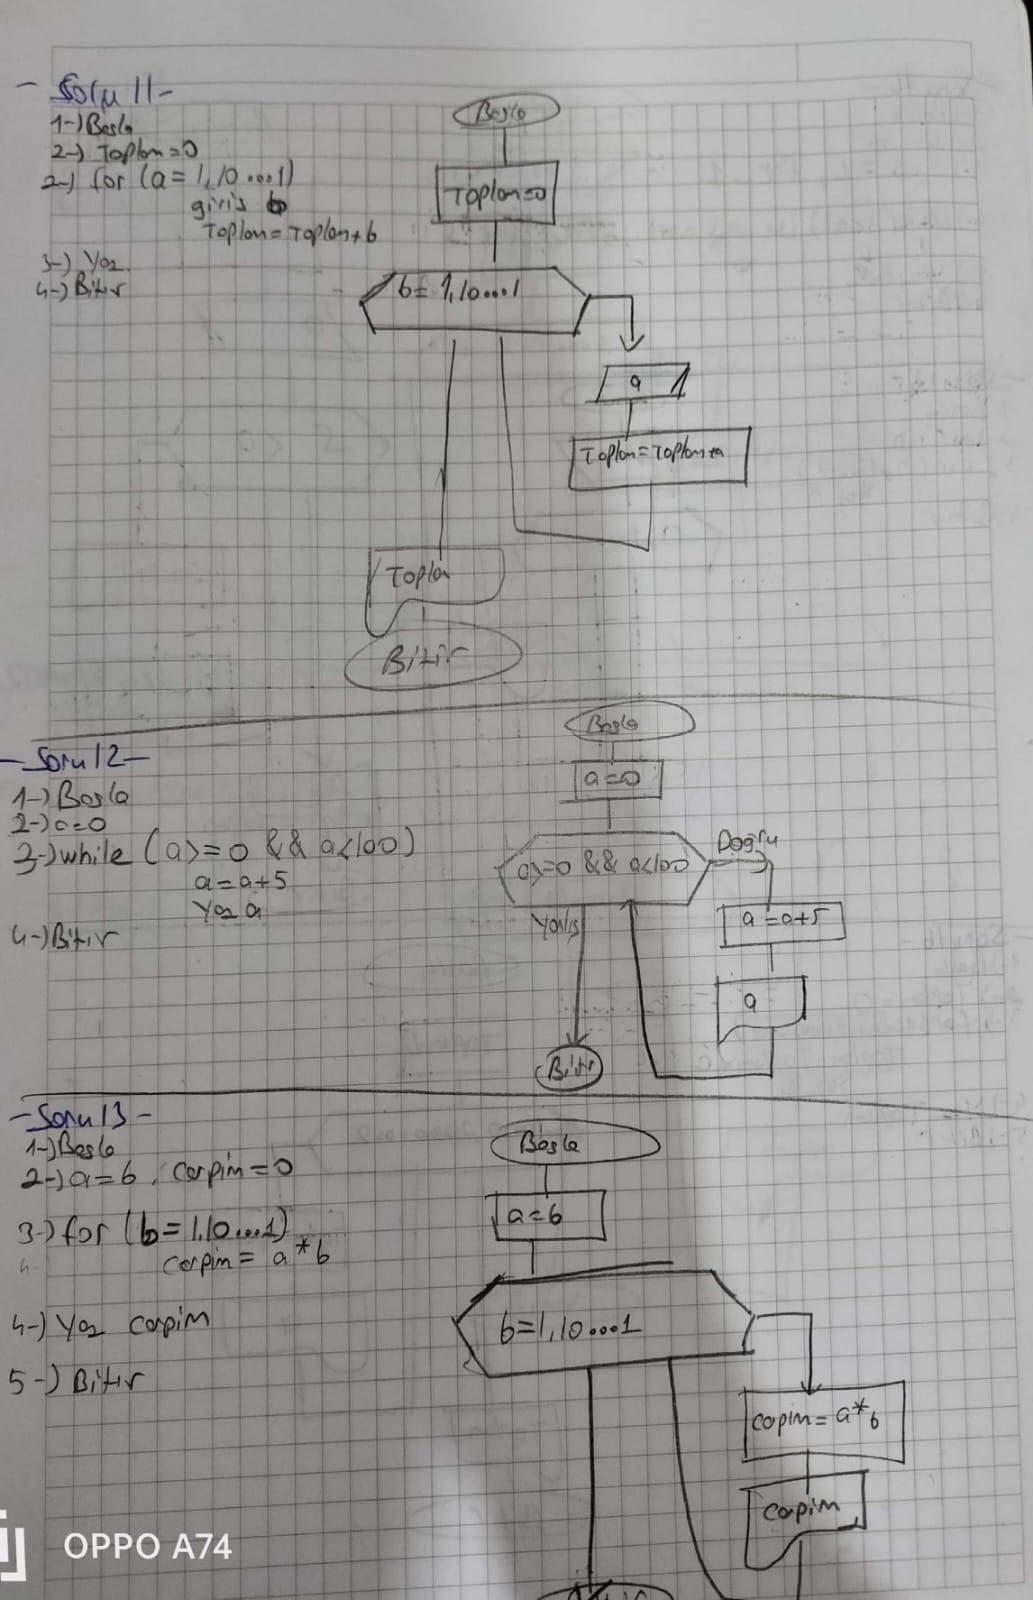 - Soru 11 -
1-) Basla
2-) Toplam=0
2-) for (a=1,10...1)
giris b
Toplam=Toplam+b
3-) Yaz
4-) Bitir
Basla
Toplam=0
b=1,10...1
a
Toplam=Toplam+a
Toplam
Bitir
- Soru 12 -
1-) Basla
2-) a=0
3-) while (a>=0 && a<100)
a=a+5
Yaz a
4-) Bitir
Basla
a=0
a>=0 && a<100
Dogru
Yanlis
a=a+5
a
Bitir
- Soru 13 -
1-) Basla
2-) a=6, carpim=0
3-) for (b=1,10...1)
carpim= a*b
4-) Yaz carpim
5-) Bitir
Basla
a=6
b=1,10...1
carpim= a*b
carpim
OPPO A74